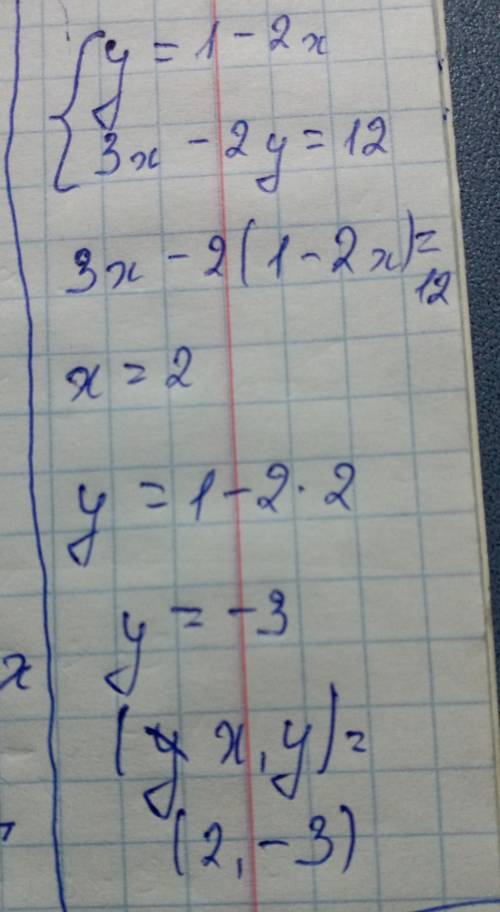 {y = 1 - 2x
3x - 2y = 12
3x - 2(1 - 2x) =
12
x = 2
y = 1 - 2 · 2
y = -3
x
(x, y) =
(2, -3)